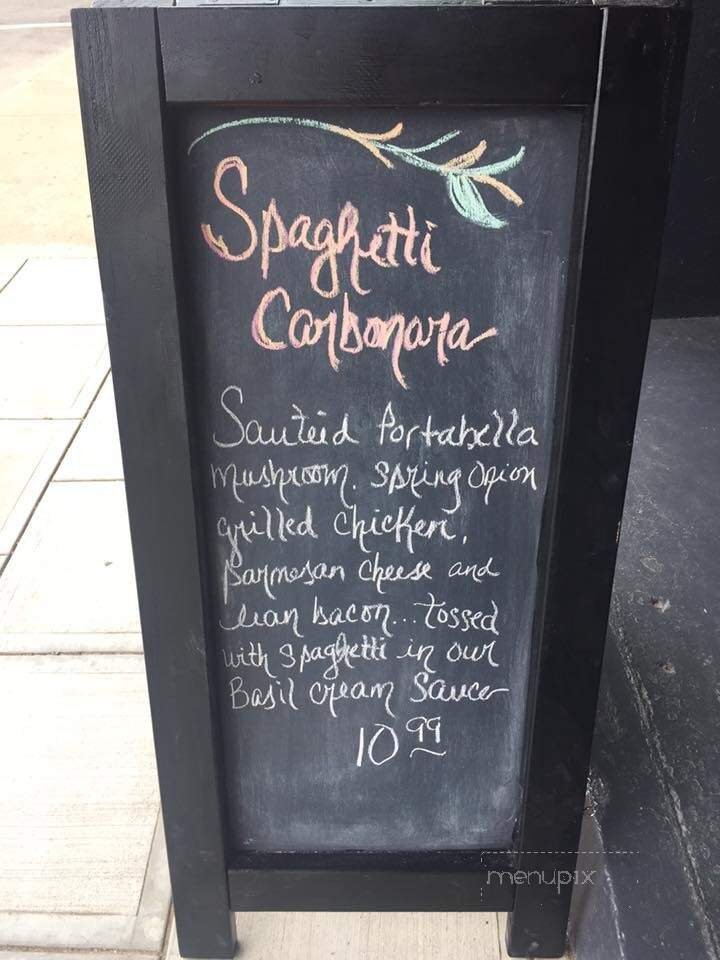 Spaghetti
Carbonara
Sauteid Portabella
mushroom, spring onion
grilled chicken,
parmesan cheese and
lean bacon... tossed
with spaghetti in our
Basil cream Sauce
10 99
menupix